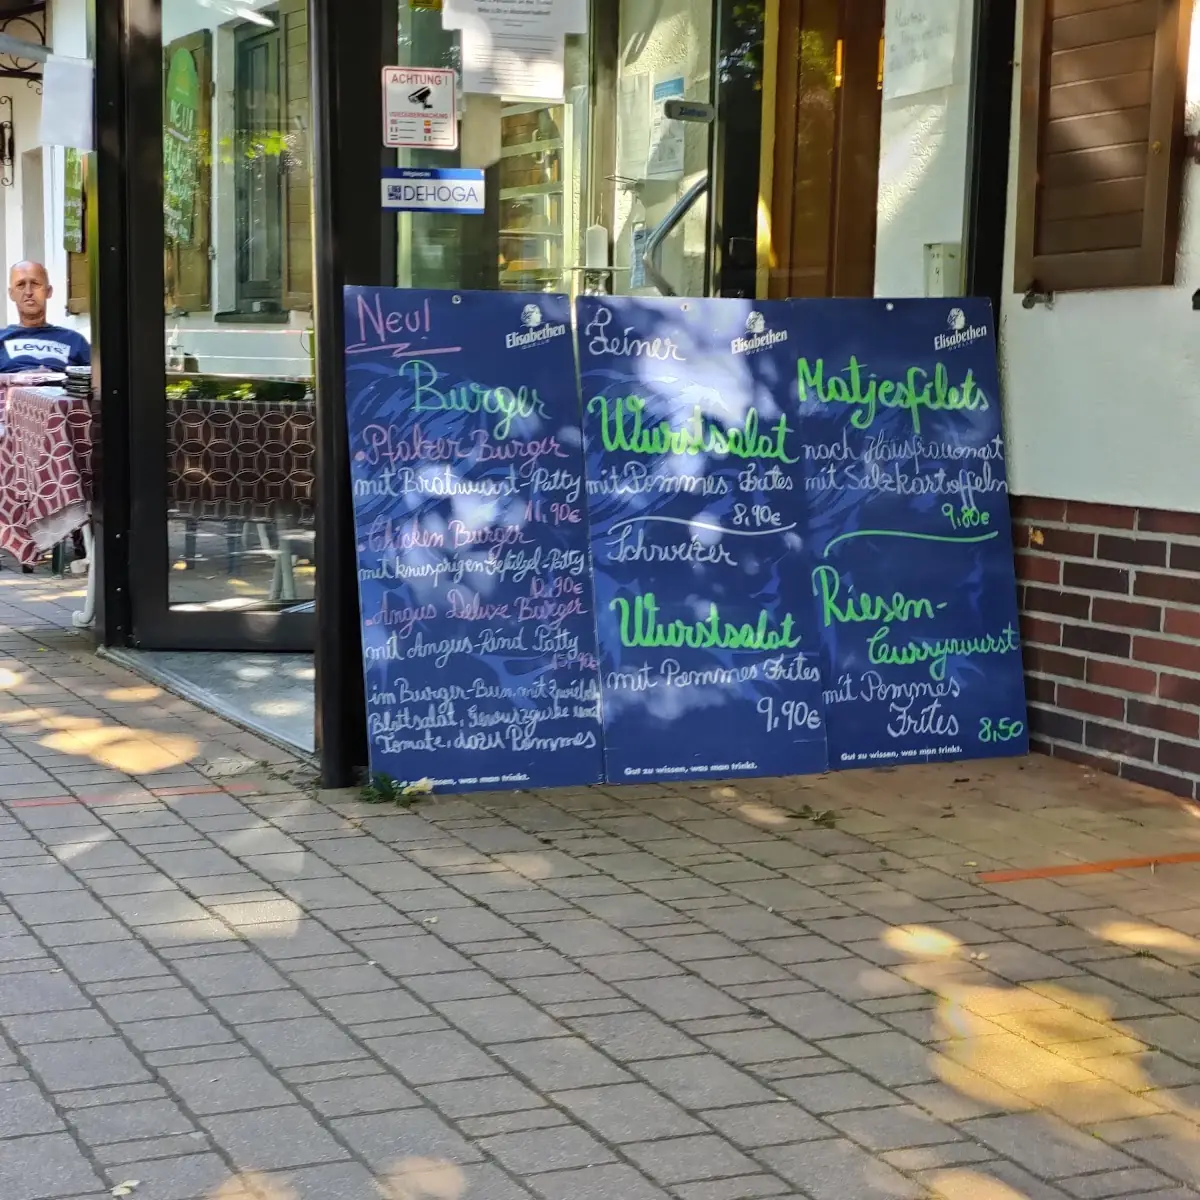 ACHTUNG !
VIDEOÜBERWACHUNG
DEHOGA
LEVI'S
Neu!
Elisabethen
QUELLE
Burger
Pfälzer Burger
mit Bratwurst-Patty
11,90€
Chicken Burger
mit knusprigen Geflügel-Patty
12,90€
Angus Deluxe Burger
mit Angus-Rind Patty
im Burger-Bun mit Zwiebeln
Blattsalat, Gewürzgurke und
Tomate, dazu Pommes
wissen, was man trinkt.
Feiner
Elisabethen
QUELLE
Wurstsalat
mit Pommes Frites
8,90€
Schweizer
Wurstsalat
mit Pommes Frites
9,90€
Gut zu wissen, was man trinkt.
Elisabethen
QUELLE
Matjesfilets
nach Hausfrauenart
mit Salzkartoffeln
9,80€
Riesen-
Currywurst
mit Pommes
Frites
8,50
Gut zu wissen, was man trinkt.